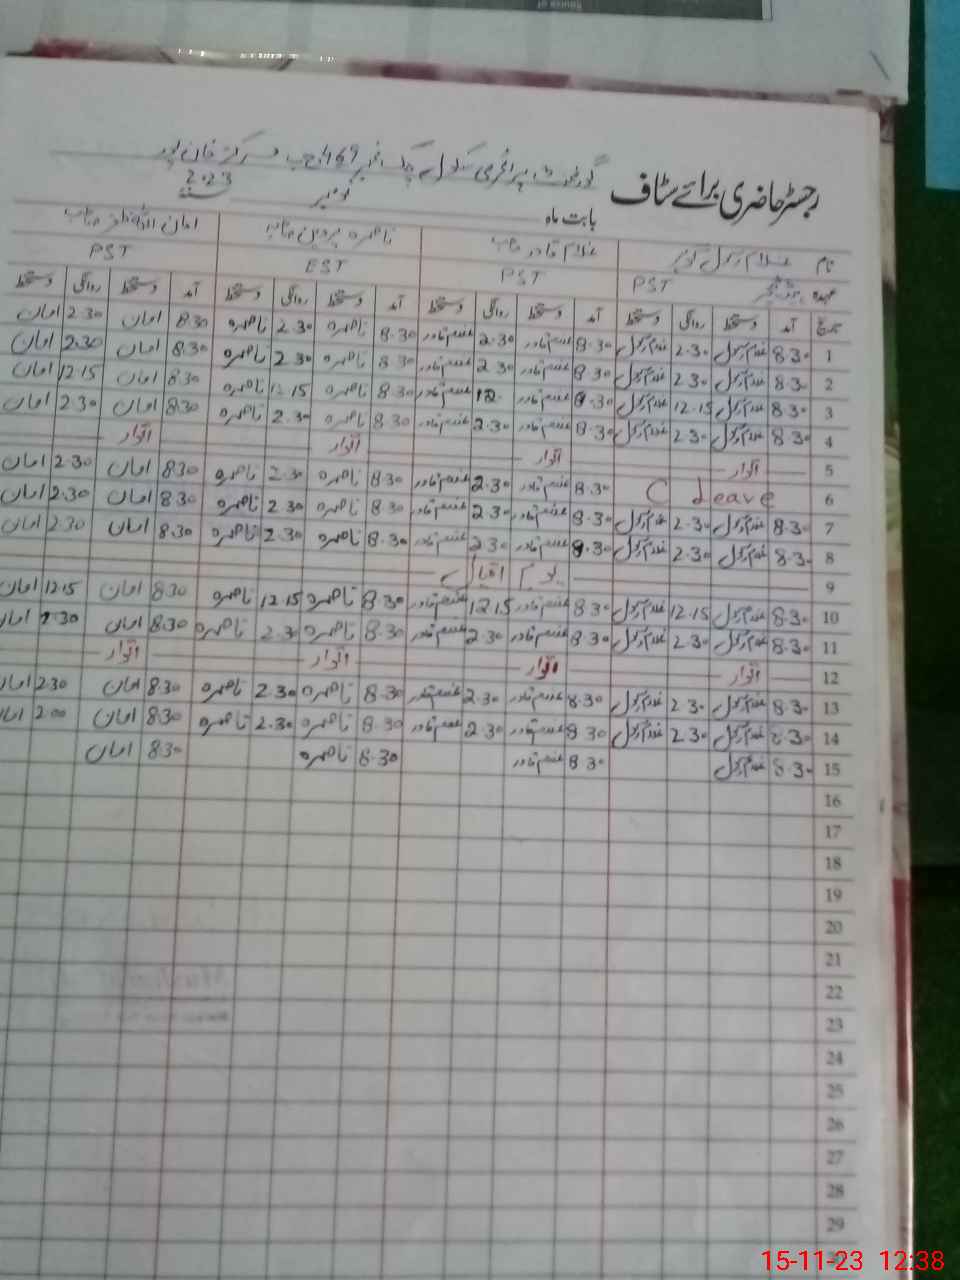 رجسٹر حاضری برائے سٹاف گورنمنٹ پرائمری سکول چک نمبر 469 ج ب مرکز خان پور
بابت ماہ نومبر 2023
نام غلام رسول غلام قادر صاحب ناصرہ پروین صاحبہ امان اللہ صاحب
عہدہ PST PST EST PST
تاریخ آمد دستخط روانگی دستخط آمد دستخط روانگی دستخط آمد دستخط روانگی دستخط آمد دستخط روانگی دستخط
1 8.30 غلام رسول 2.30 غلام رسول 8.30 غلام قادر 2.30 غلام قادر 8.30 ناصرہ 2.30 ناصرہ 8.30 امان 2.30 امان
2 8.30 غلام رسول 2.30 غلام رسول 8.30 غلام قادر 2.30 غلام قادر 8.30 ناصرہ 2.30 ناصرہ 8.30 امان 2.30 امان
3 8.30 غلام رسول 12.15 غلام رسول 8.30 غلام قادر 12. غلام قادر 8.30 ناصرہ 12.15 ناصرہ 8.30 امان 12.15 امان
4 8.30 غلام رسول 2.30 غلام رسول 8.30 غلام قادر 2.30 غلام قادر 8.30 ناصرہ 2.30 ناصرہ 8.30 امان 2.30 امان
5 اتوار اتوار اتوار اتوار
6 C Leave 8.30 غلام قادر 2.30 غلام قادر 8.30 ناصرہ 2.30 ناصرہ 8.30 امان 2.30 امان
7 8.30 غلام رسول 2.30 غلام رسول 8.30 غلام قادر 2.30 غلام قادر 8.30 ناصرہ 2.30 ناصرہ 8.30 امان 2.30 امان
8 8.30 غلام رسول 2.30 غلام رسول 8.30 غلام قادر 2.30 غلام قادر 8.30 ناصرہ 2.30 ناصرہ 8.30 امان 2.30 امان
9 یوم اقبال
10 8.30 غلام رسول 12.15 غلام رسول 8.30 غلام قادر 12.15 غلام قادر 8.30 ناصرہ 12.15 ناصرہ 8.30 امان 12.15 امان
11 8.30 غلام رسول 2.30 غلام رسول 8.30 غلام قادر 2.30 غلام قادر 8.30 ناصرہ 2.30 ناصرہ 8.30 امان 2.30 امان
12 اتوار اتوار اتوار اتوار
13 8.30 غلام رسول 2.30 غلام رسول 8.30 غلام قادر 2.30 غلام قادر 8.30 ناصرہ 2.30 ناصرہ 8.30 امان 2.30 امان
14 8.30 غلام رسول 2.30 غلام رسول 8.30 غلام قادر 2.30 غلام قادر 8.30 ناصرہ 2.30 ناصرہ 8.30 امان 2.00 امان
15 8.30 غلام رسول 8.30 غلام قادر 8.30 ناصرہ 8.30 امان
16
17
18
19
20
21
22
23
24
25
26
27
28
29
15-11-23 12:38